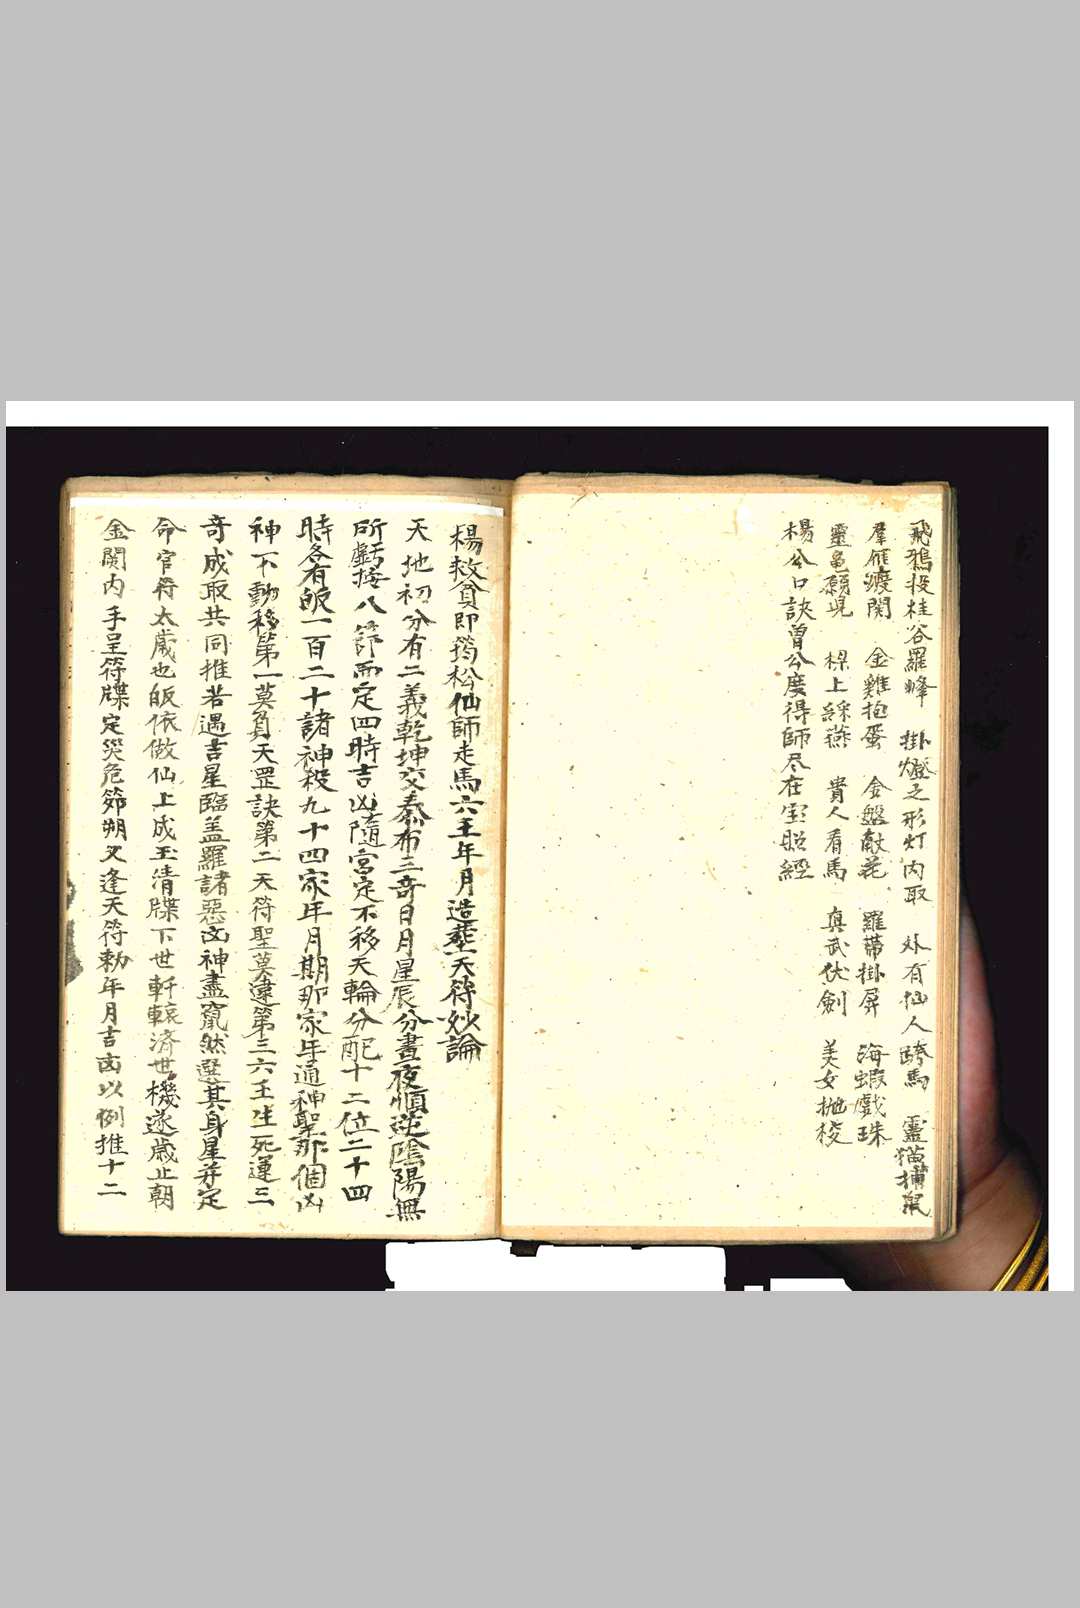 飛鵝投桂谷羅峰　掛燈之形灯内取　外有仙人跨馬　靈猫捕鼠
羣雁渡関　金雞抱蛋　金盤献花　羅帶掛屏　海蝦戲珠
靈龜顧児　樑上綵燕　貴人看馬　真武伏劍　美女抛梭
楊公口訣曾公度得師尽在宝照經
楊救貧即筠松仙師走馬六壬年月造塟天符妙論
天地初分有二義乾坤交泰布三奇日月星辰分晝夜順逆陰陽無
所虧按八節而定四時吉凶隨宮定不移天輪分配十二位二十四
時各有皈一百二十諸神殺九十四家年月期那家年通神聖那個凶
神不動移第一莫負天罡訣第二天符聖莫違第三六壬生死運三
奇成取共同推若遇吉星臨盖羅諸惡凶神盡竄然選其身星并定
命官符太歲也皈依做仙上成玉清牒下世軒轅済世機逐歲止朝
金闕内手呈符牒定災危節朔又逢天符勅年月吉凶以例推十二